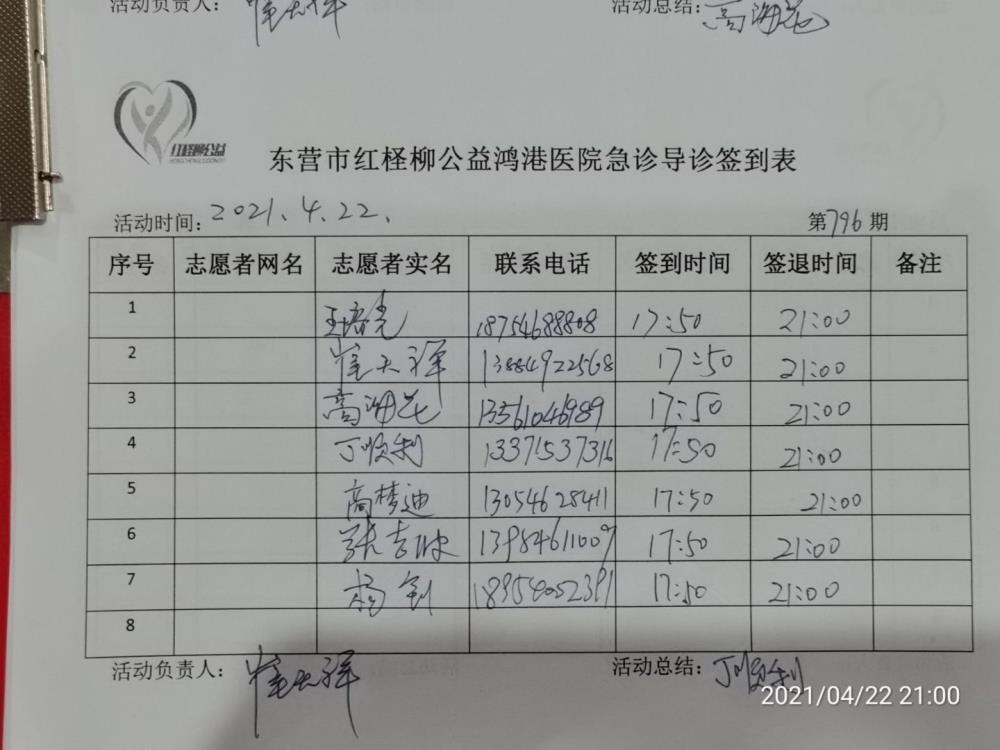 活动负责人：崔天祥 活动总结：高海花
红柽柳公益
东营市红柽柳公益鸿港医院急诊导诊签到表
活动时间：2021.4.22. 第796期
序号 志愿者网名 志愿者实名 联系电话 签到时间 签退时间 备注
1 王培亮 18754688808 17:50 21:00
2 崔天祥 13884922568 17:50 21:00
3 高海花 13561046989 17:50 21:00
4 丁顺利 13371537316 17:50 21:00
5 高梦迪 13054628411 17:50 21:00
6 17:50 21:00
7 杨剑 17:50 21:00
8
活动负责人：崔天祥 活动总结：丁顺利
2021/04/22 21:00